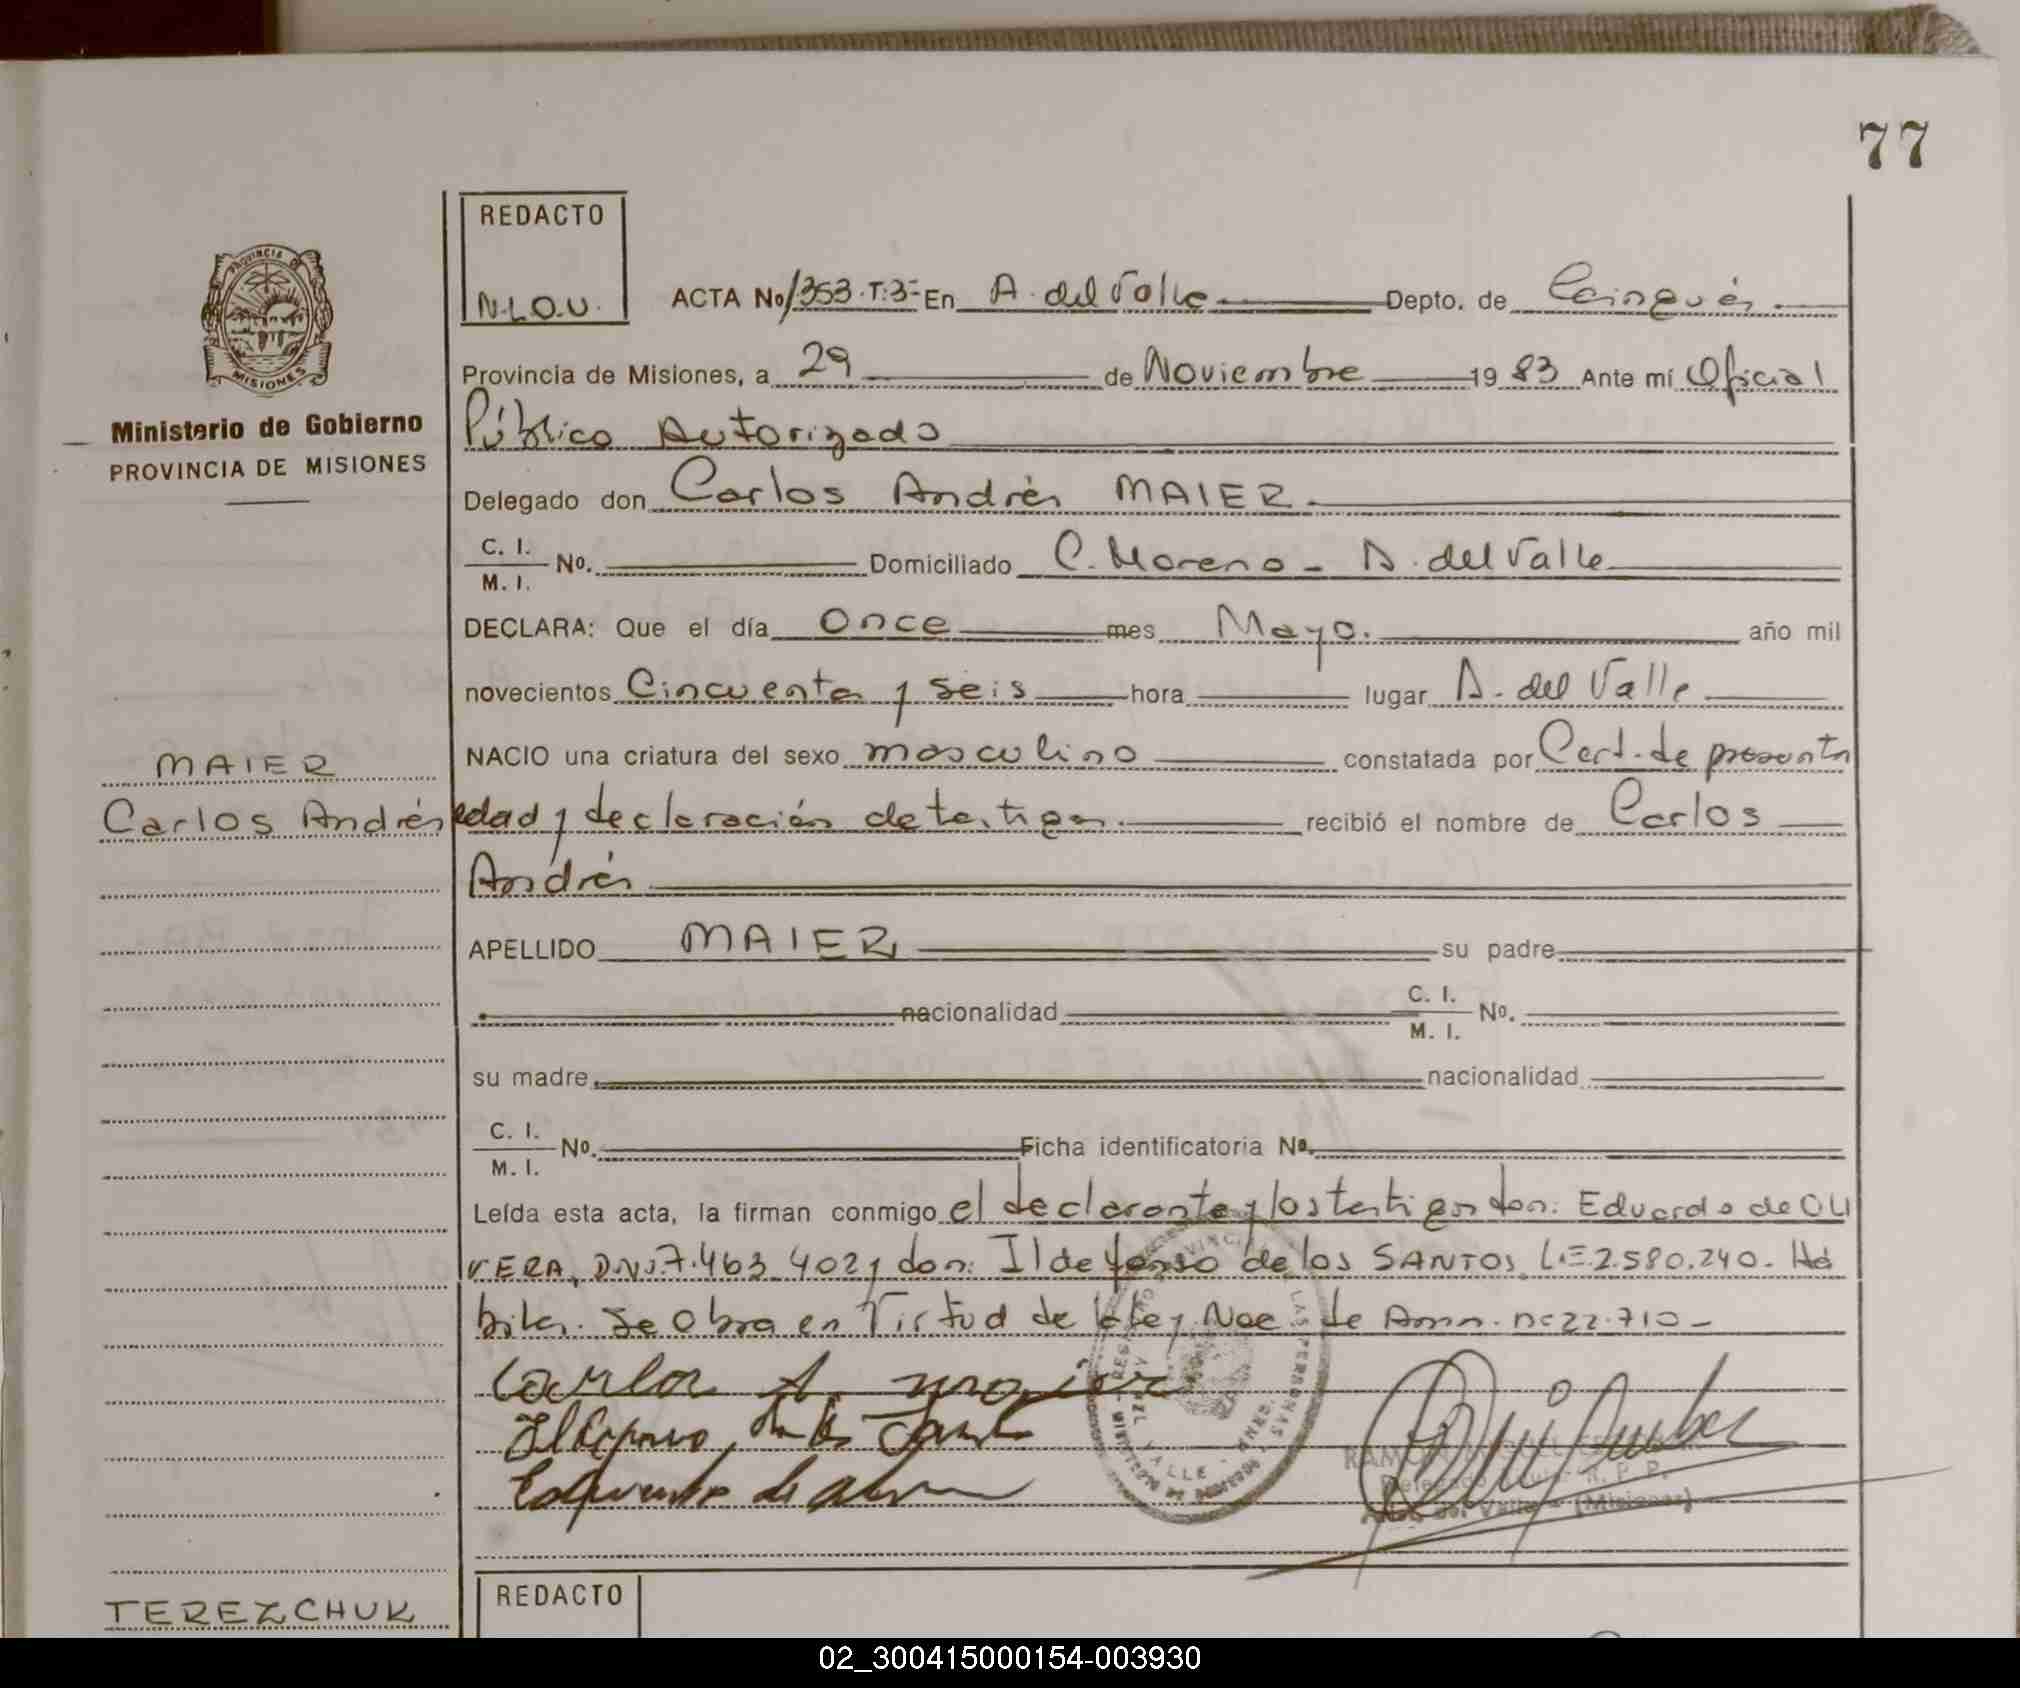 77
REDACTO
N.L.O.U.
ACTA No 353.T:3- En A. del Valle Depto. de Cainguás
Provincia de Misiones, a 29 de Noviembre 19 83 Ante mí Oficial
Público Autorizado
PROVINCIA DE
MISIONES
Ministerio de Gobierno
PROVINCIA DE MISIONES
Delegado don Carlos Andrés MAIER
C. I.
M. I.
No. Domiciliado C. Moreno - A. del Valle
DECLARA: Que el día once mes Mayo. año mil
novecientos Cincuenta y seis hora lugar A. del Valle
NACIO una criatura del sexo masculino constatada por Cert. de presunta
edad y declaración de testigos recibió el nombre de Carlos
Andrés
MAIER
Carlos Andrés
APELLIDO MAIER su padre
nacionalidad C. I.
M. I. No.
su madre nacionalidad
C. I.
M. I.
No. Ficha identificatoria No.
Leída esta acta, la firman conmigo el declarante y los testigos don: Eduardo de OLI
VERA, D.N.I. 7.463.402 y don: Ildefonso de los SANTOS L.E. 2.580.240. Há
biles. Se obra en Virtud de la Ley Nac. de Amn. nº 22.710-
Carlos A. Maier
Ildefonso de los Santos
Eduardo de
VALLE
LAS PERSONAS
Valle - (Misiones)
TEREZCHUK
REDACTO
02_300415000154-003930